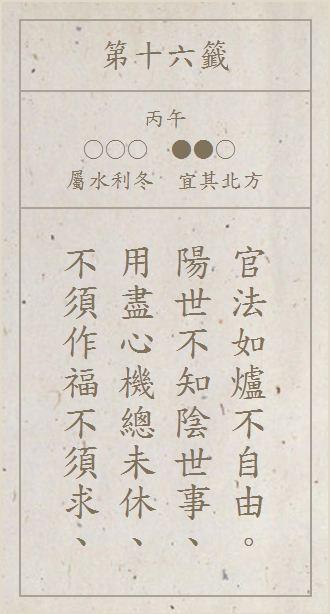 第十六籤
丙午
○○○ ●●○
屬水利冬 宜其北方
不須作福不須求、
用盡心機總未休、
陽世不知陰世事、
官法如爐不自由。